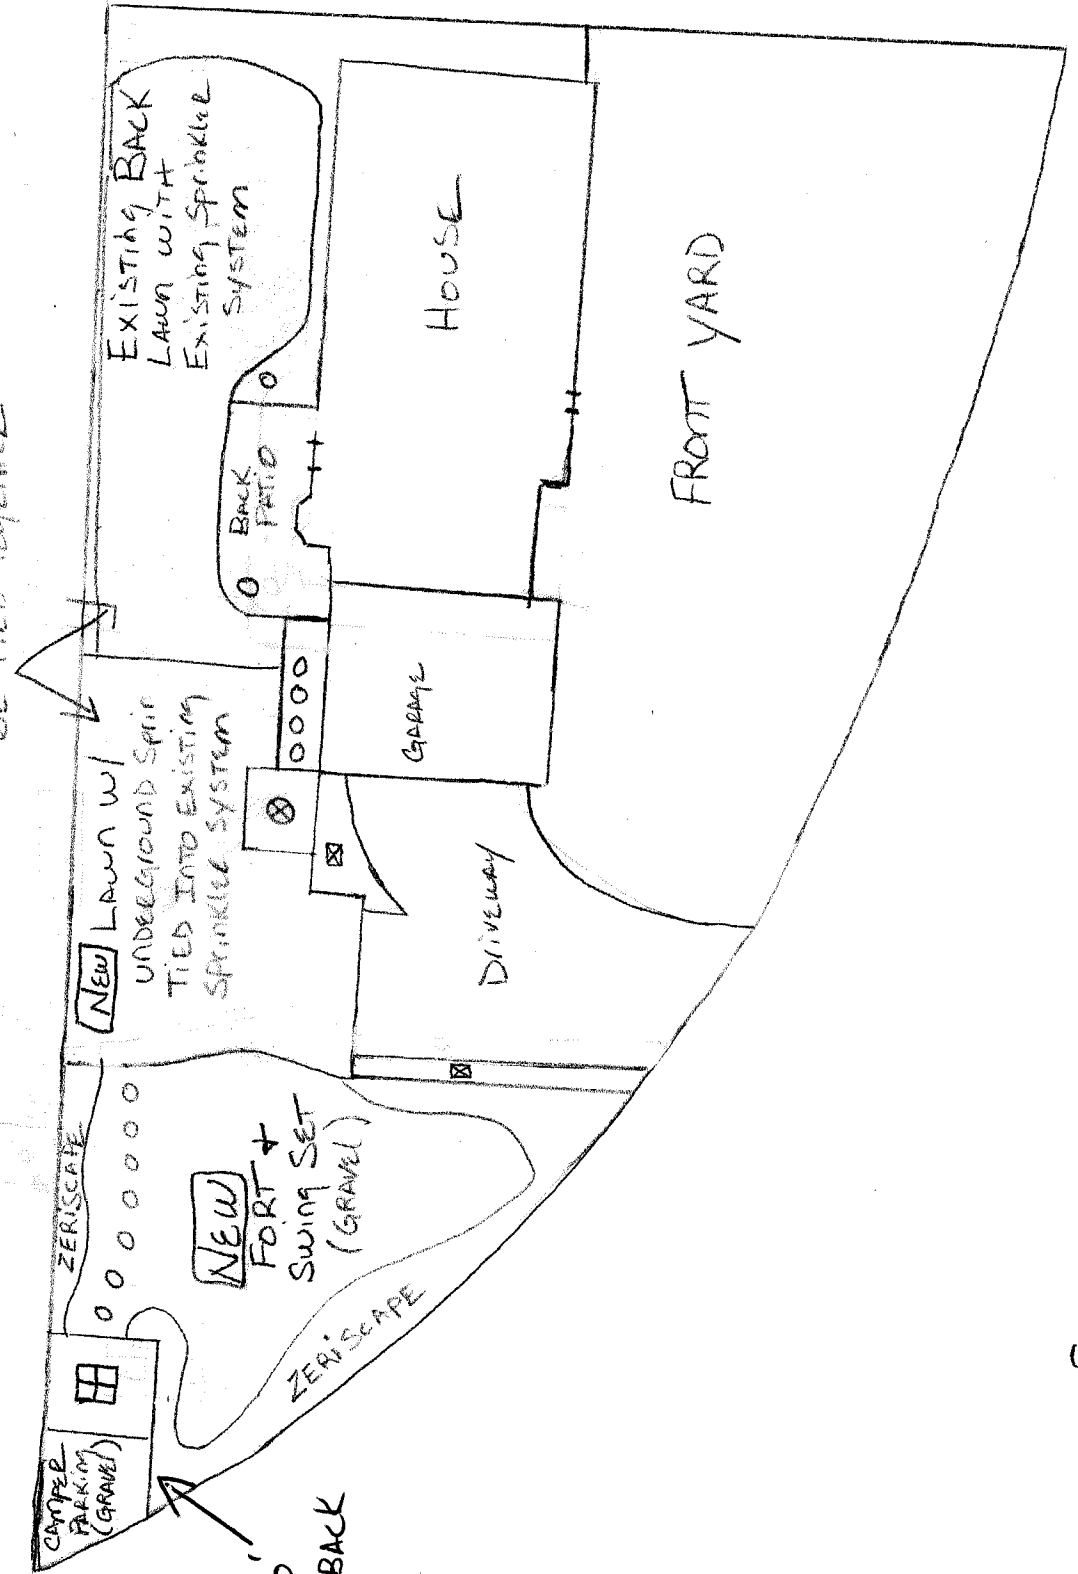 BE TIED TOGETHER
EXISTING BACK
LAWN WITH
EXISTING SPRINKLER
SYSTEM
HOUSE
FRONT YARD
BACK
PATIO
GARAGE
NEW LAWN W/
UNDERGROUND SPRIN
TIED INTO EXISTING
SPRINKLER SYSTEM
DRIVEWAY
ZERISCAPE
NEW
FORT +
SWING SET
(GRAVEL)
ZERISCAPE
CAMPER
PARKING
(GRAVEL)
BACK